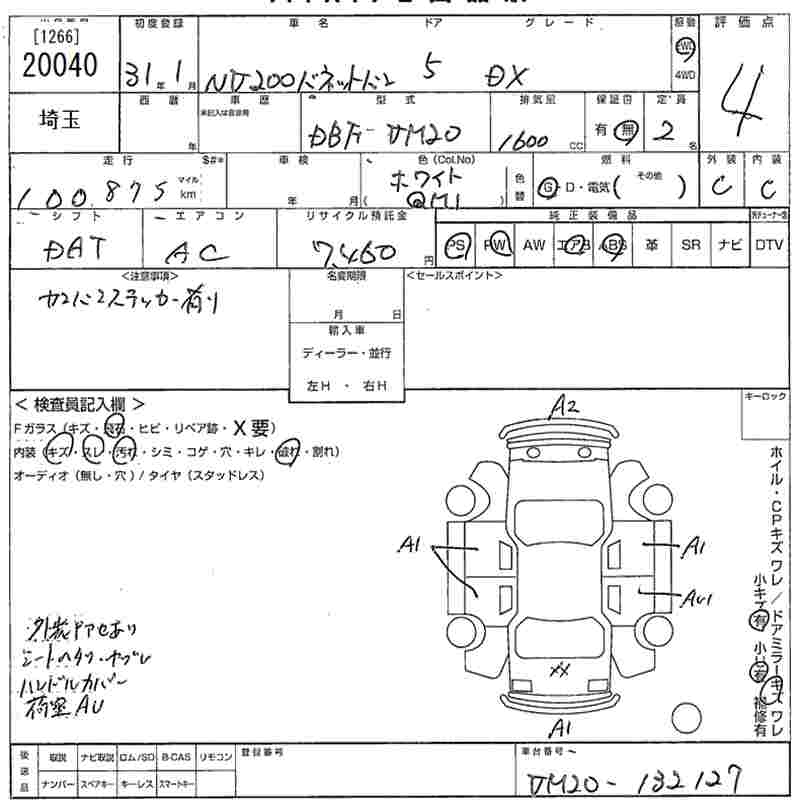 [1266]
20040
初度登録
31年 1月
車名 ドア グレード
NV200バネットバン 5 DX
駆動
2WD
4WD
評価点
4
埼玉
西暦
年
車歴
未記入は自家用
型式
DBF-VM20
排気量
1600 CC
保証書
有・無
定員
2名
走行
100,875
マイル
km
S#*
車検
年 月
色(Col.No)
ホワイト
( QM1 )
色替
燃料
G・D・電気( その他 )
外装
C
内装
C
シフト
DAT
エアコン
AC
リサイクル預託金
7,460円
純正装備品
PS PW AW エアB ABS 革 SR ナビ DTV
<注意事項>
カンバンステッカー有り
名変期限
月 日
輸入車
ディーラー・並行
左H ・ 右H
<セールスポイント>
<検査員記入欄>
Fガラス(キズ・飛石・ヒビ・リペア跡・X要)
内装(キズ・スレ・汚れ・シミ・コゲ・穴・キレ・破れ・割れ)
オーディオ(無し・穴)/タイヤ(スタッドレス)
外装ドアセあり
シートヘタリ・ヤブレ
ハンドルカバー
荷室AU
A2
A1
A1
AU1
XX
A1
キーロック
ホイル・CPキズ ワレ/ドアミラーキズ ワレ
小キズ有 小凹有 補修有
後送品
取説 ナビ取説 ロム/SD B-CAS リモコン
ナンバー スペアキー キーレス スマートキー
登録番号
車台番号~
VM20-132127